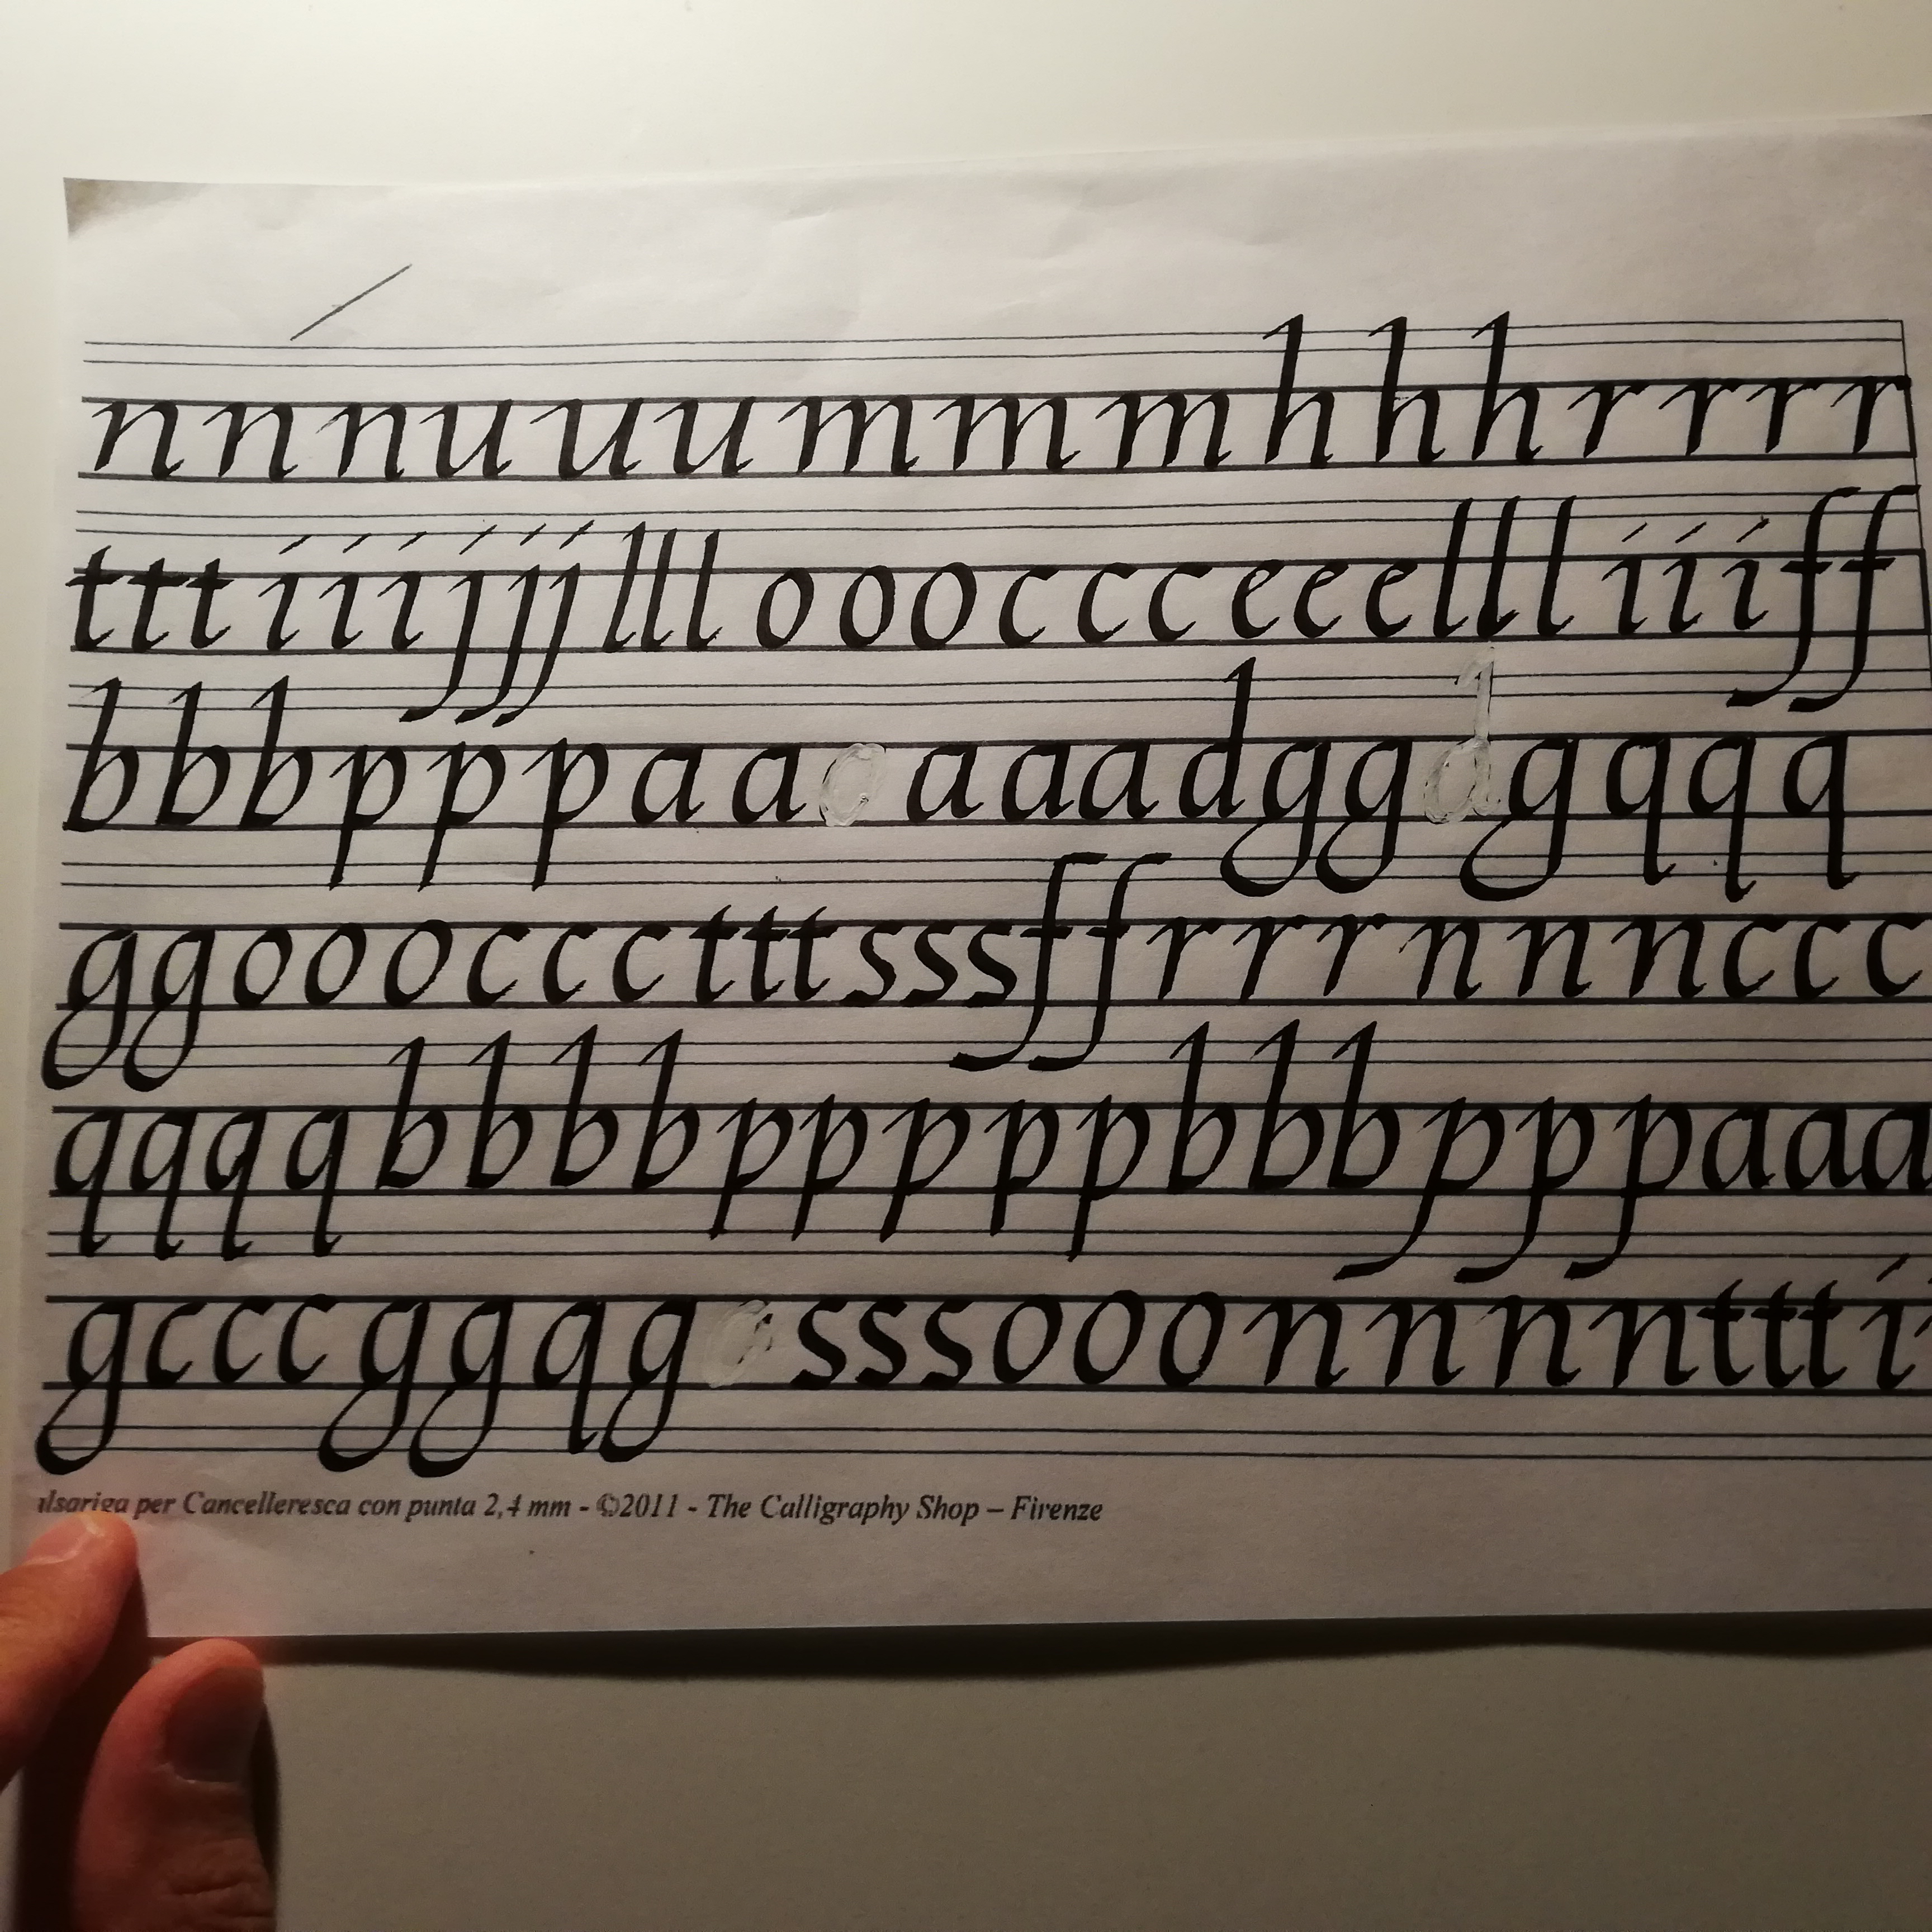 nnnuuummmhhhrrrr
tttiiijjjllloooccceeellliiiff
bbbpppaaaaadgggqqq
ggoooccctttsssffrrrnnnccc
qqqqbbbbpppppbbbpppaaa
gcccggqgsssooonnnnttti
per Cancelleresca con punta 2,4 mm - ©2011 - The Calligraphy Shop – Firenze